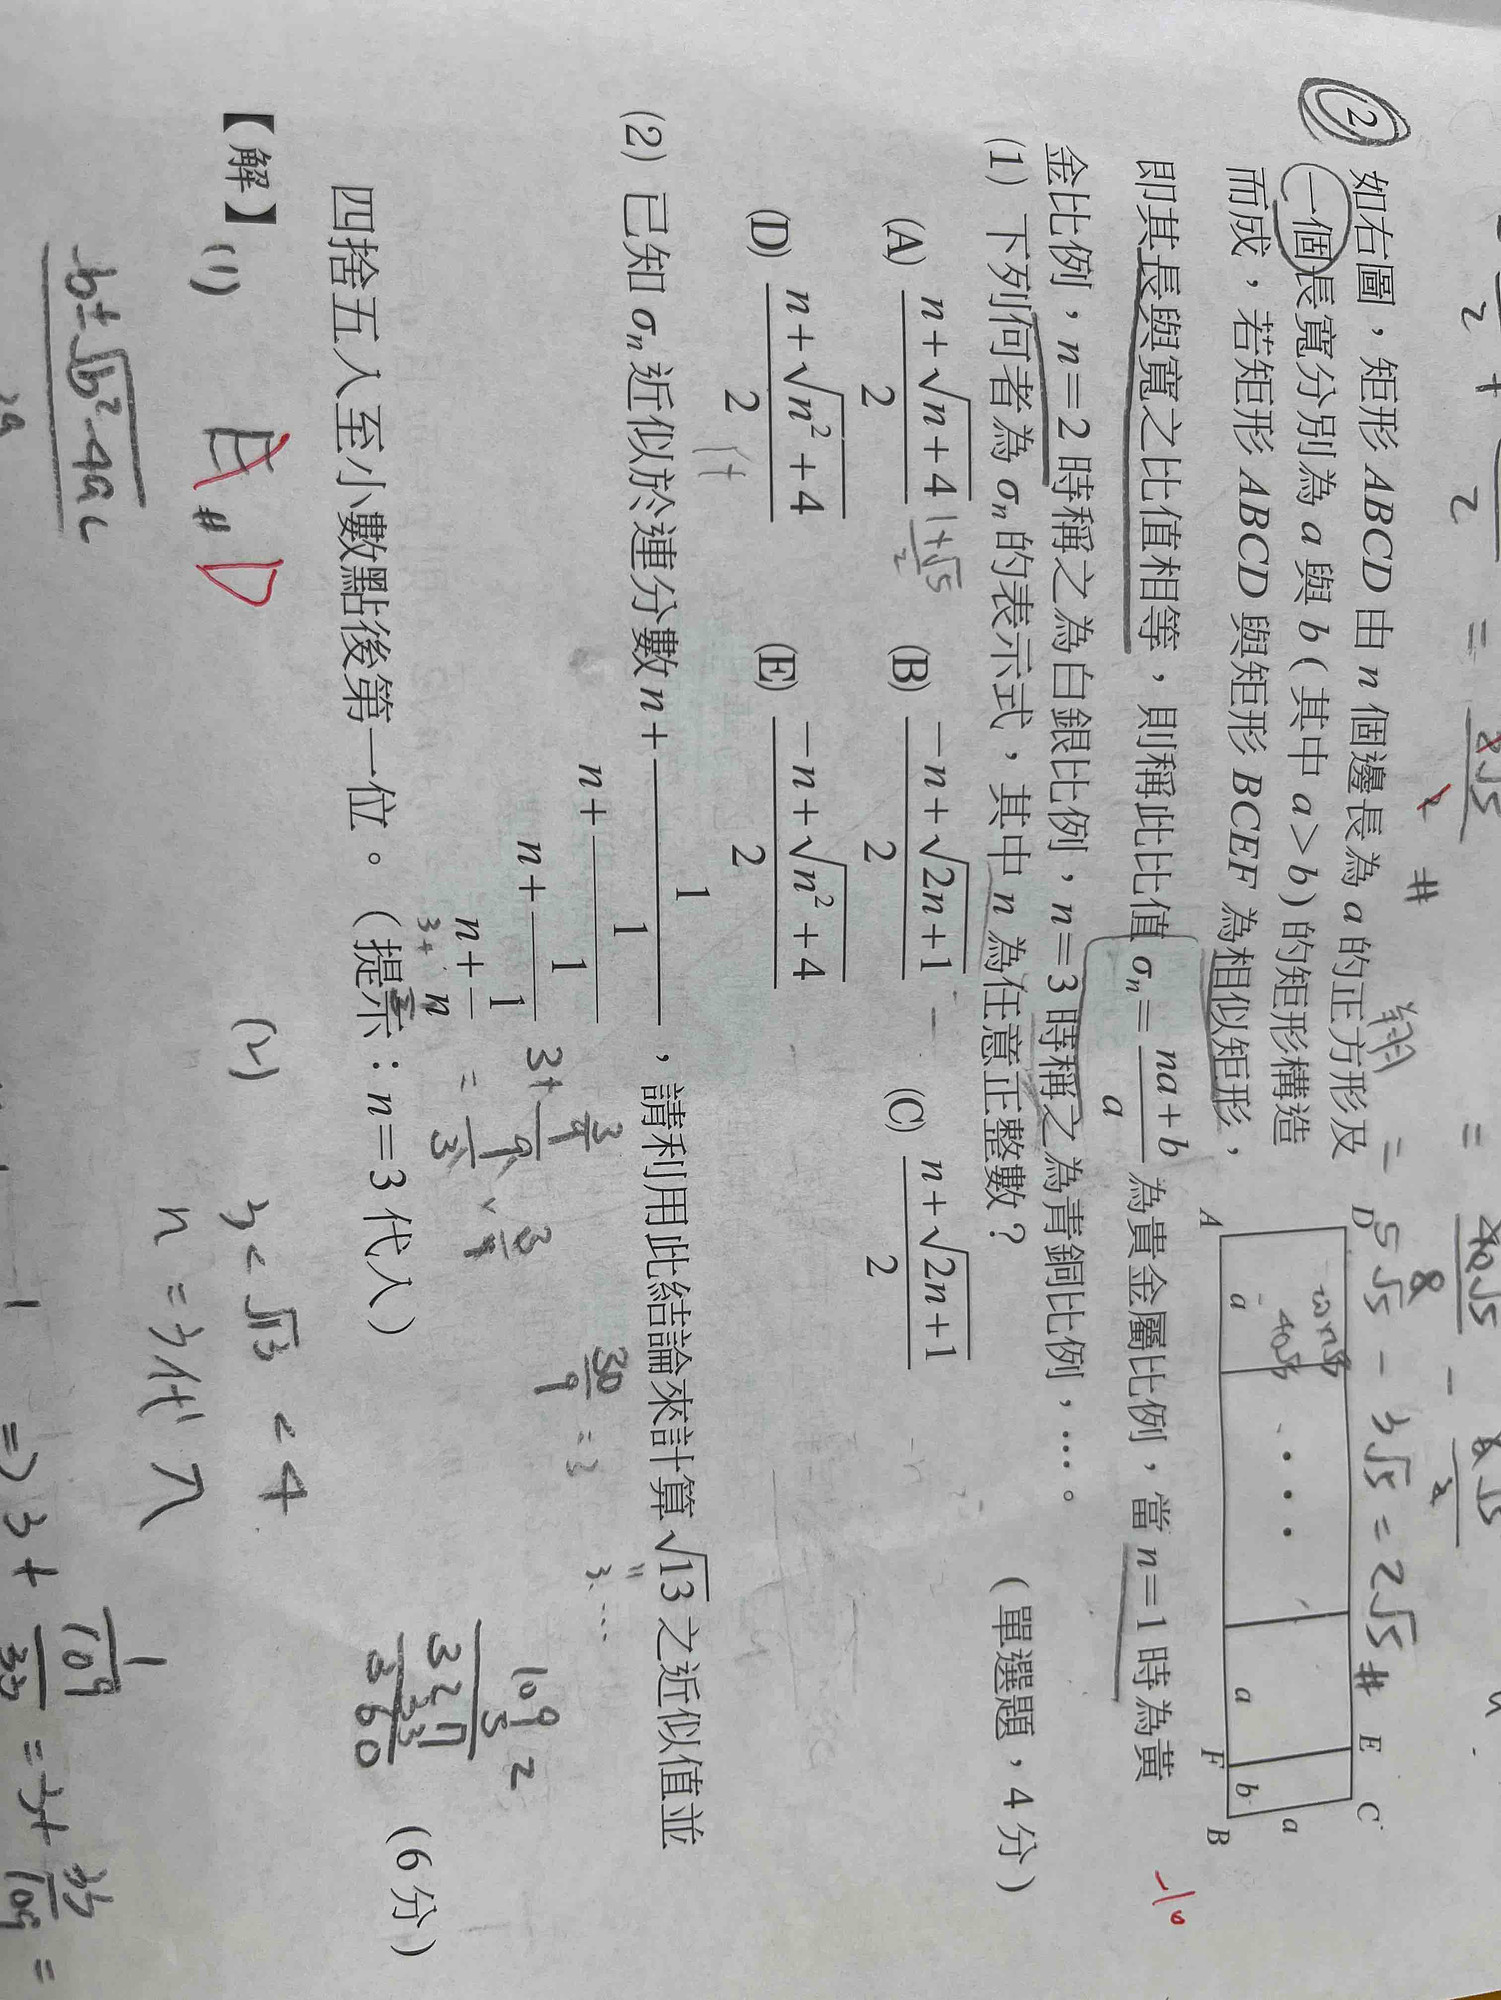 ② 如右圖，矩形 ABCD 由 n 個邊長為 a 的正方形及
一個長寬分別為 a 與 b（其中 a>b）的矩形構造
而成，若矩形 ABCD 與矩形 BCEF 為相似矩形，
即其長與寬之比值相等，則稱此比值 σₙ = (na+b)/a 為貴金屬比例，當 n=1 時為黃
金比例，n=2 時稱之為白銀比例，n=3 時稱之為青銅比例，…。
D E C
A a … a F b B
a
(1) 下列何者為 σₙ 的表示式，其中 n 為任意正整數？ （單選題，4 分）
(A) (n+√(n+4))/2 (B) (−n+√(2n+1))/2 (C) (n+√(2n+1))/2
(D) (n+√(n²+4))/2 (E) (−n+√(n²+4))/2
(1+√5)/2
(2) 已知 σₙ 近似於連分數 n+1/(n+1/(n+1/(n+1/n)))，請利用此結論來計算 √13 之近似值並
四捨五入至小數點後第一位。（提示：n=3 代入） （6 分）
【解】(1) E # D
(2) 3<√13<4
n=3代入
-b±√(b²-4ac)
2a
⇒ 3+1/(109/33) = 3+33/109 =
5√5 − 3√5 = 2√5 #
-10